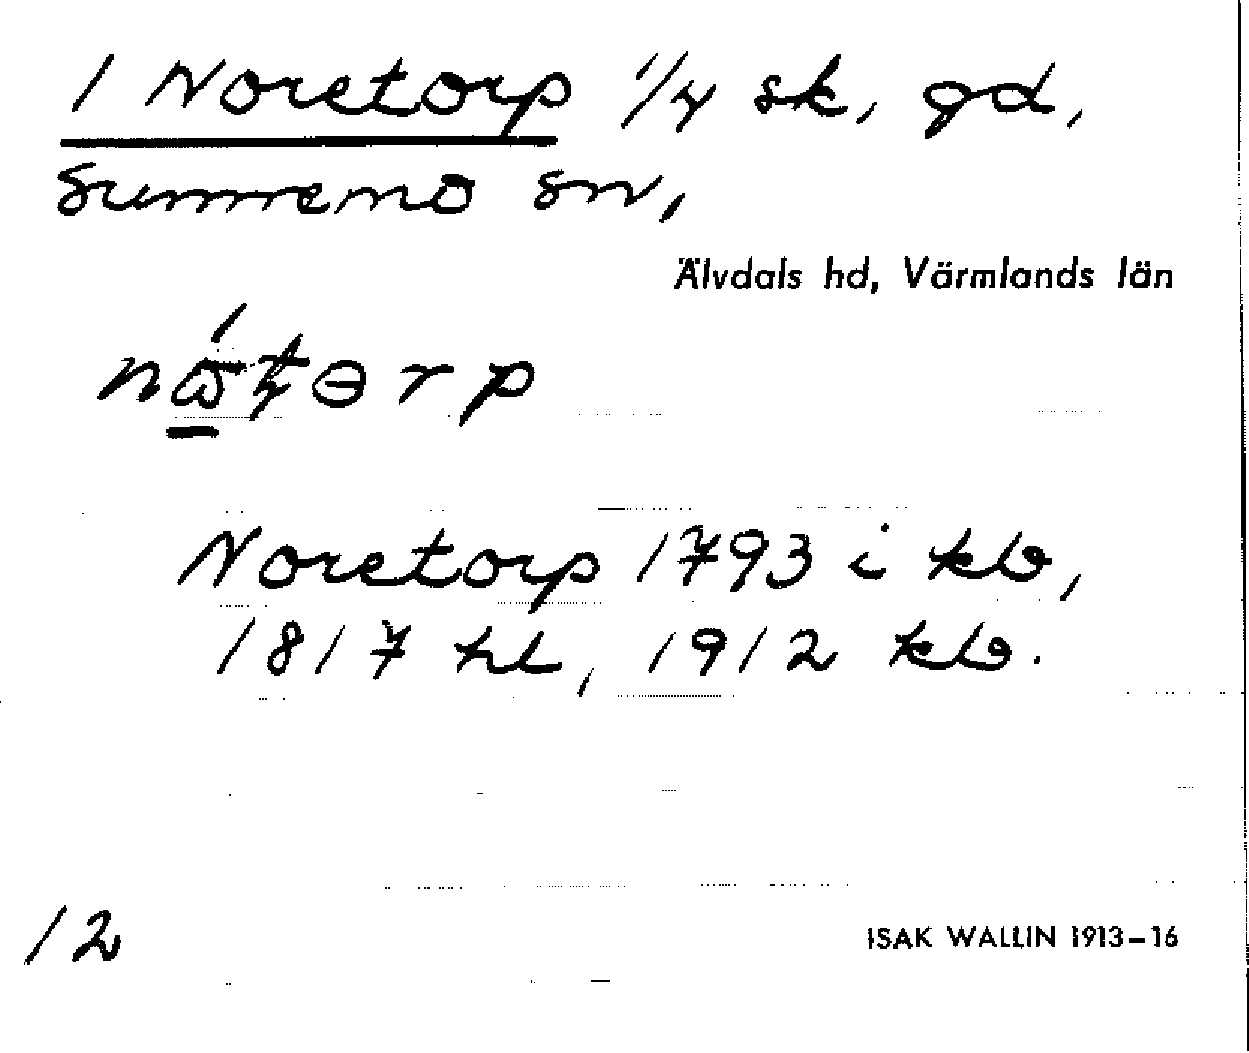 1 Noretorp 1/4 sk, gd,
Sunnemo sn,
Älvdals hd, Värmlands län
Noretorp 1793 i kb,
1817 hl, 1912 kb.
12
ISAK WALLIN 1913–16